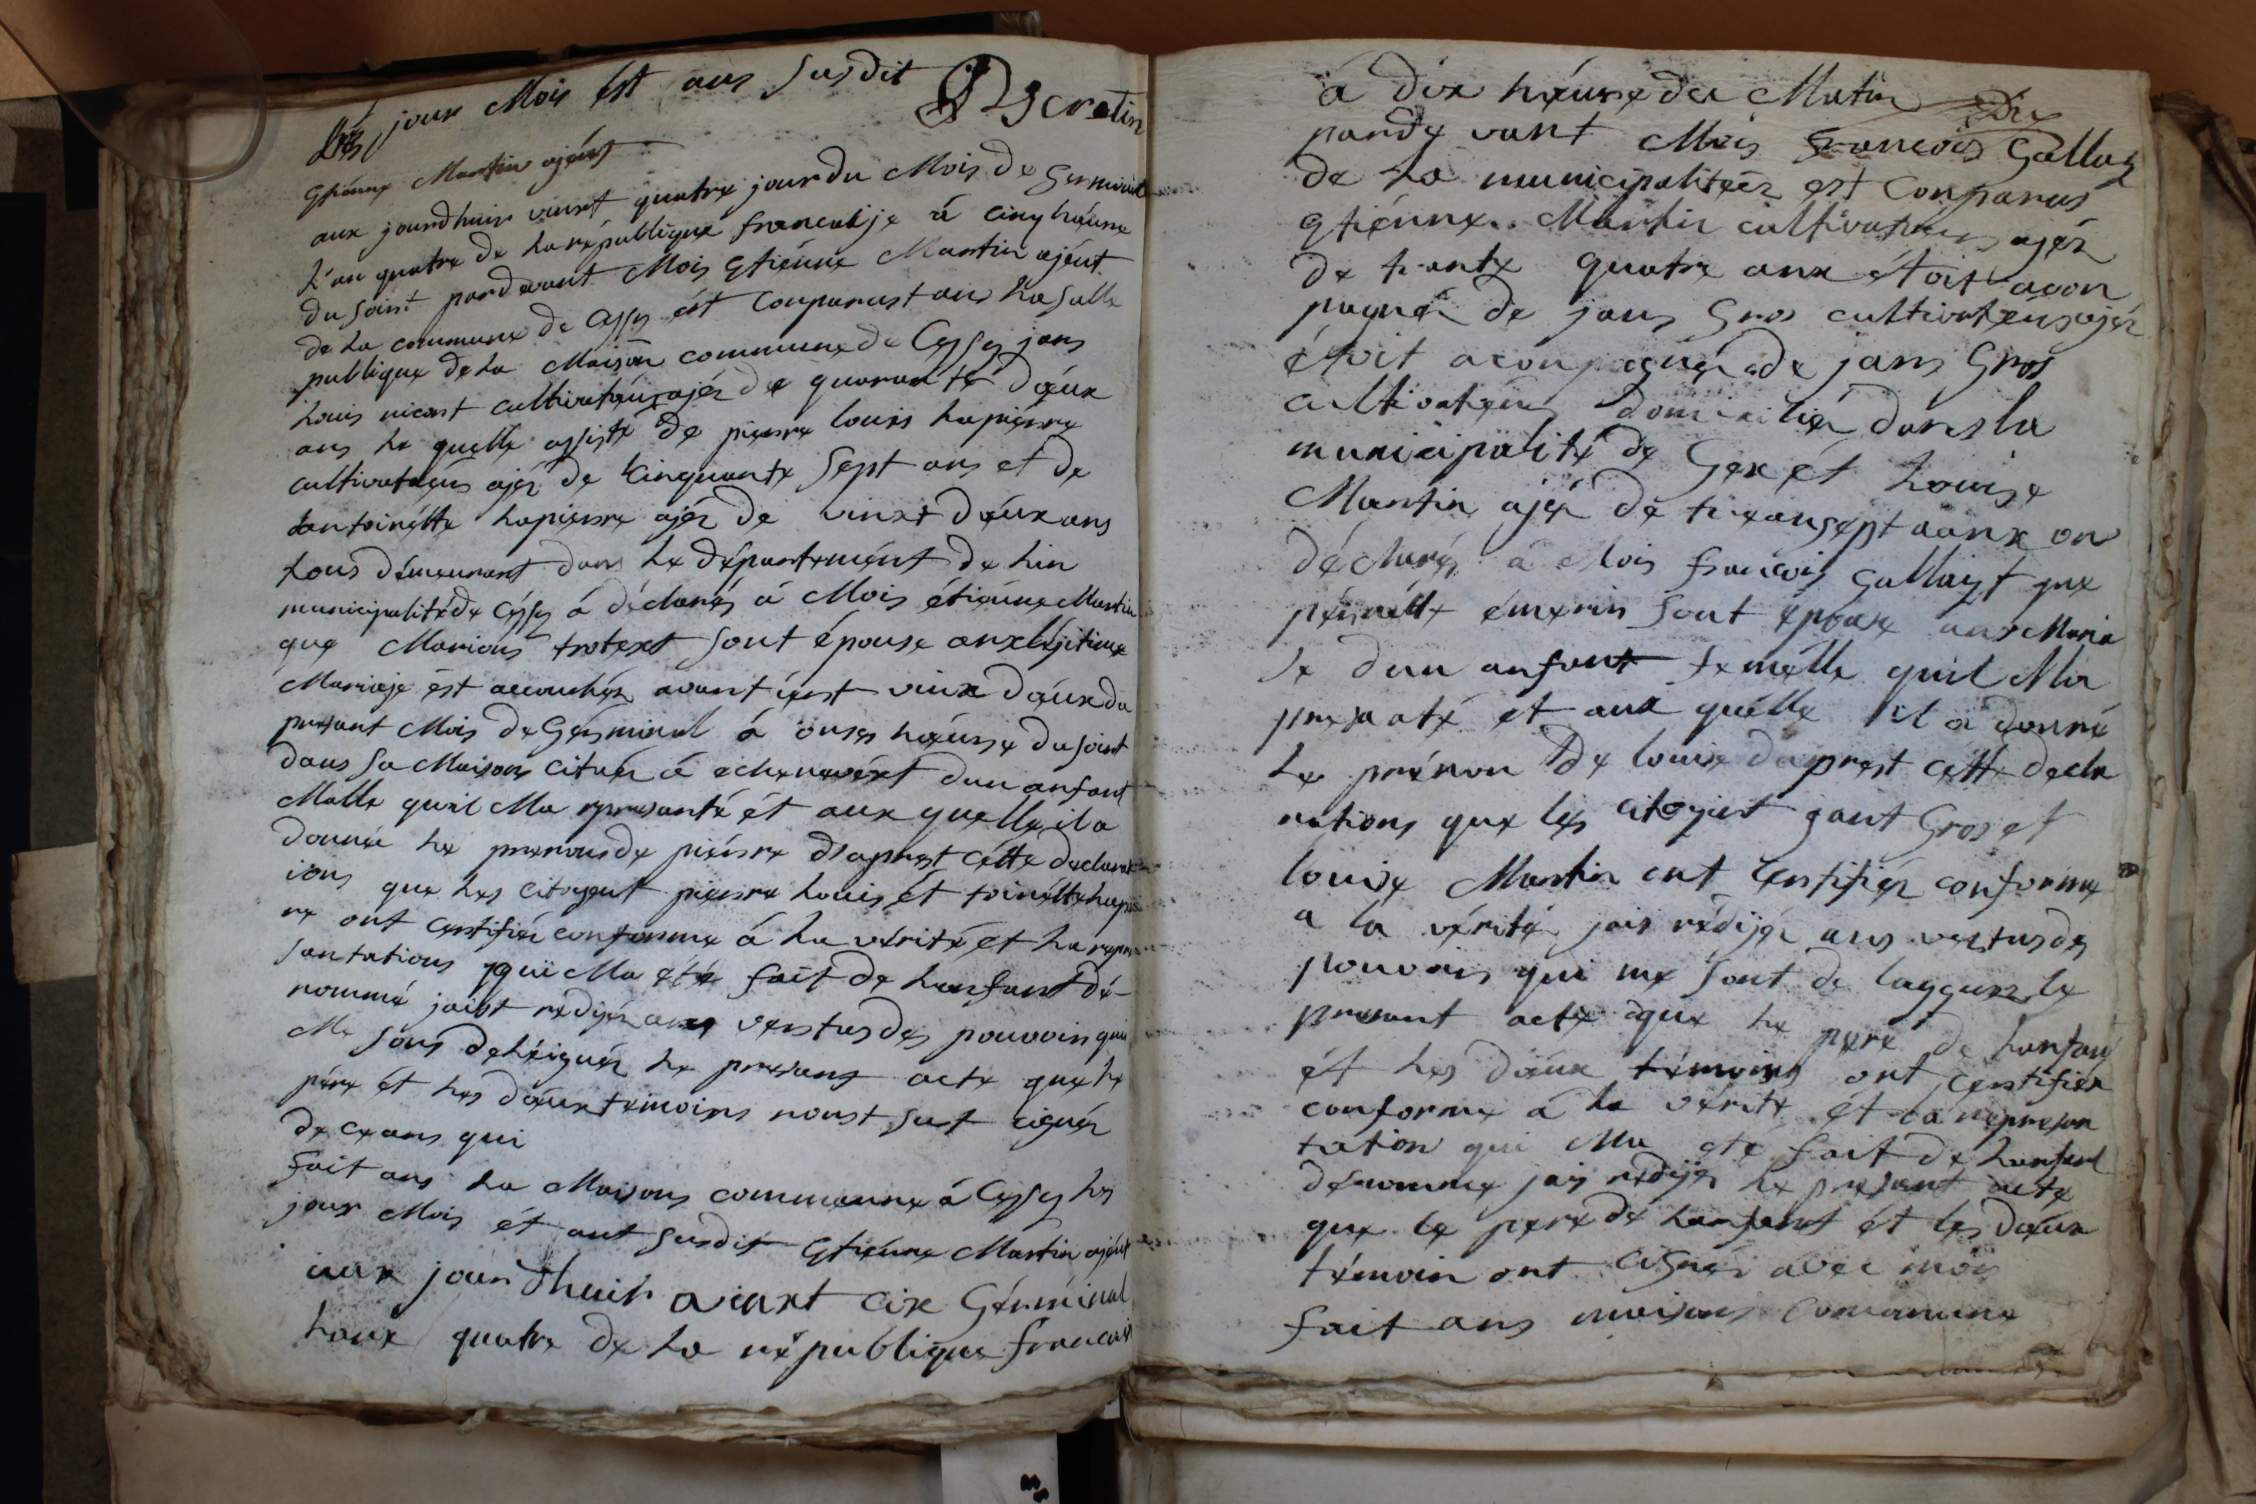 Les jour Mois est ans susdit P Ducretin
Etiénne Martin ajént
aux jourdhuis vinst quatre jour du Mois de Germinal
L'an quatre de La république francaisje à cinq héure
du soirt pardevant Mois Etiénne Martin ajént
de La commune de Cessy ést Comparust ans La salle
publique de La Maison commune de Cessy jans
Louis nicost cultivatéur ajér de quarante déux
ans Le quelle assisté de pierre louis Lapiérre
cultivatéurs ajér de cinquante sept ans et de
antoinétte Lapierre ajér de vinst déux ans
tous démeurant dans Le département de Lin
municipalité de Céssy à déclarés à Mois étiénne Martin
que Marions trotext sont épouse anx Léjitime
Mariaje ést accouchér avant iérst vinx déux du
presant Mois de Gérminal à onses héurse du soirt
dans sa Maisons cituér à echenevéxt dun anfant
Malle quil Ma represanté ét aux quelle il a
donnée Le prenons de piérsre d'aprest cétte declarat
ions que Les citoyent pierre Louis ét toinétte Lapier
re ont certifiér conforme à La vérité et La repre
santations qui Ma eté fait de Lanfant dé-
nommé jaist redijér ans verstus des pouvoir qui
Me sons deléiguér Le presant acte que Le
pére ét Les déux témoins nonst sut cignér
de ceans qui
fait ans La Maisons commeune à Cessy Les
jour Mois ét ant susdit Etiénne Martin ajént
aux jourdhuis vinxt cix Gérminal
Lans quatre de La république francais
à dix héurse du Matin
pardevant Mois francois Gallay
de La municipalitéér est Comparus
Etiénne Martin cultivateurs ajér
de trante quatre anx étoit acon
pagnér de jans Gros cultivatéursajér
étoit aconpagnér de jans Gros
cultivatéurs domicilier dans la
municipalité de Gex ét Louise
Martin ajér de treansept aanx on
déclarés à Mois francois Gallayt que
pernétte émerin sont épouse ans Maria
Je dun anfant femélle quil Ma
presaaté et aux quélle il a donné
Le prénon de louise daprest cétte decla
rations que les citoyint jant Gros et
louise Martin ont certifiér conforme
a la vérité jais rédijér ans verstus des
pouvoirs qui me sont de laygués le
presant acte que Le pere de Lanfan
ét Les déux témoins ont certifiér
conforme à la vérité ét La represan
tation qui Ma ete fait de Lanfant
denomme jais redijér Le presant acte
que le pere de Lanfant ét les deux
témoin ont cignés avec mois
fait ans maisons commune